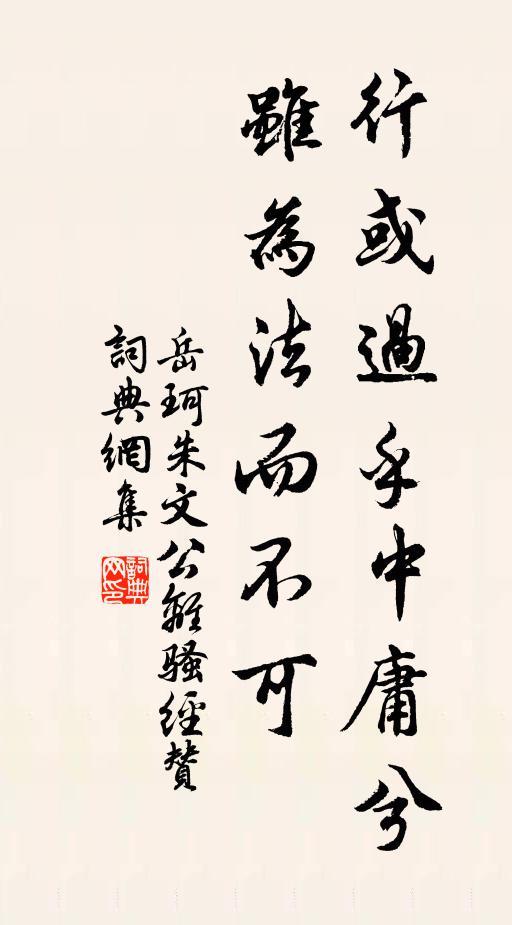 行或過乎中庸兮
雖為法而不可
岳珂朱文公離騷經贊
詞典網集
詞典網印